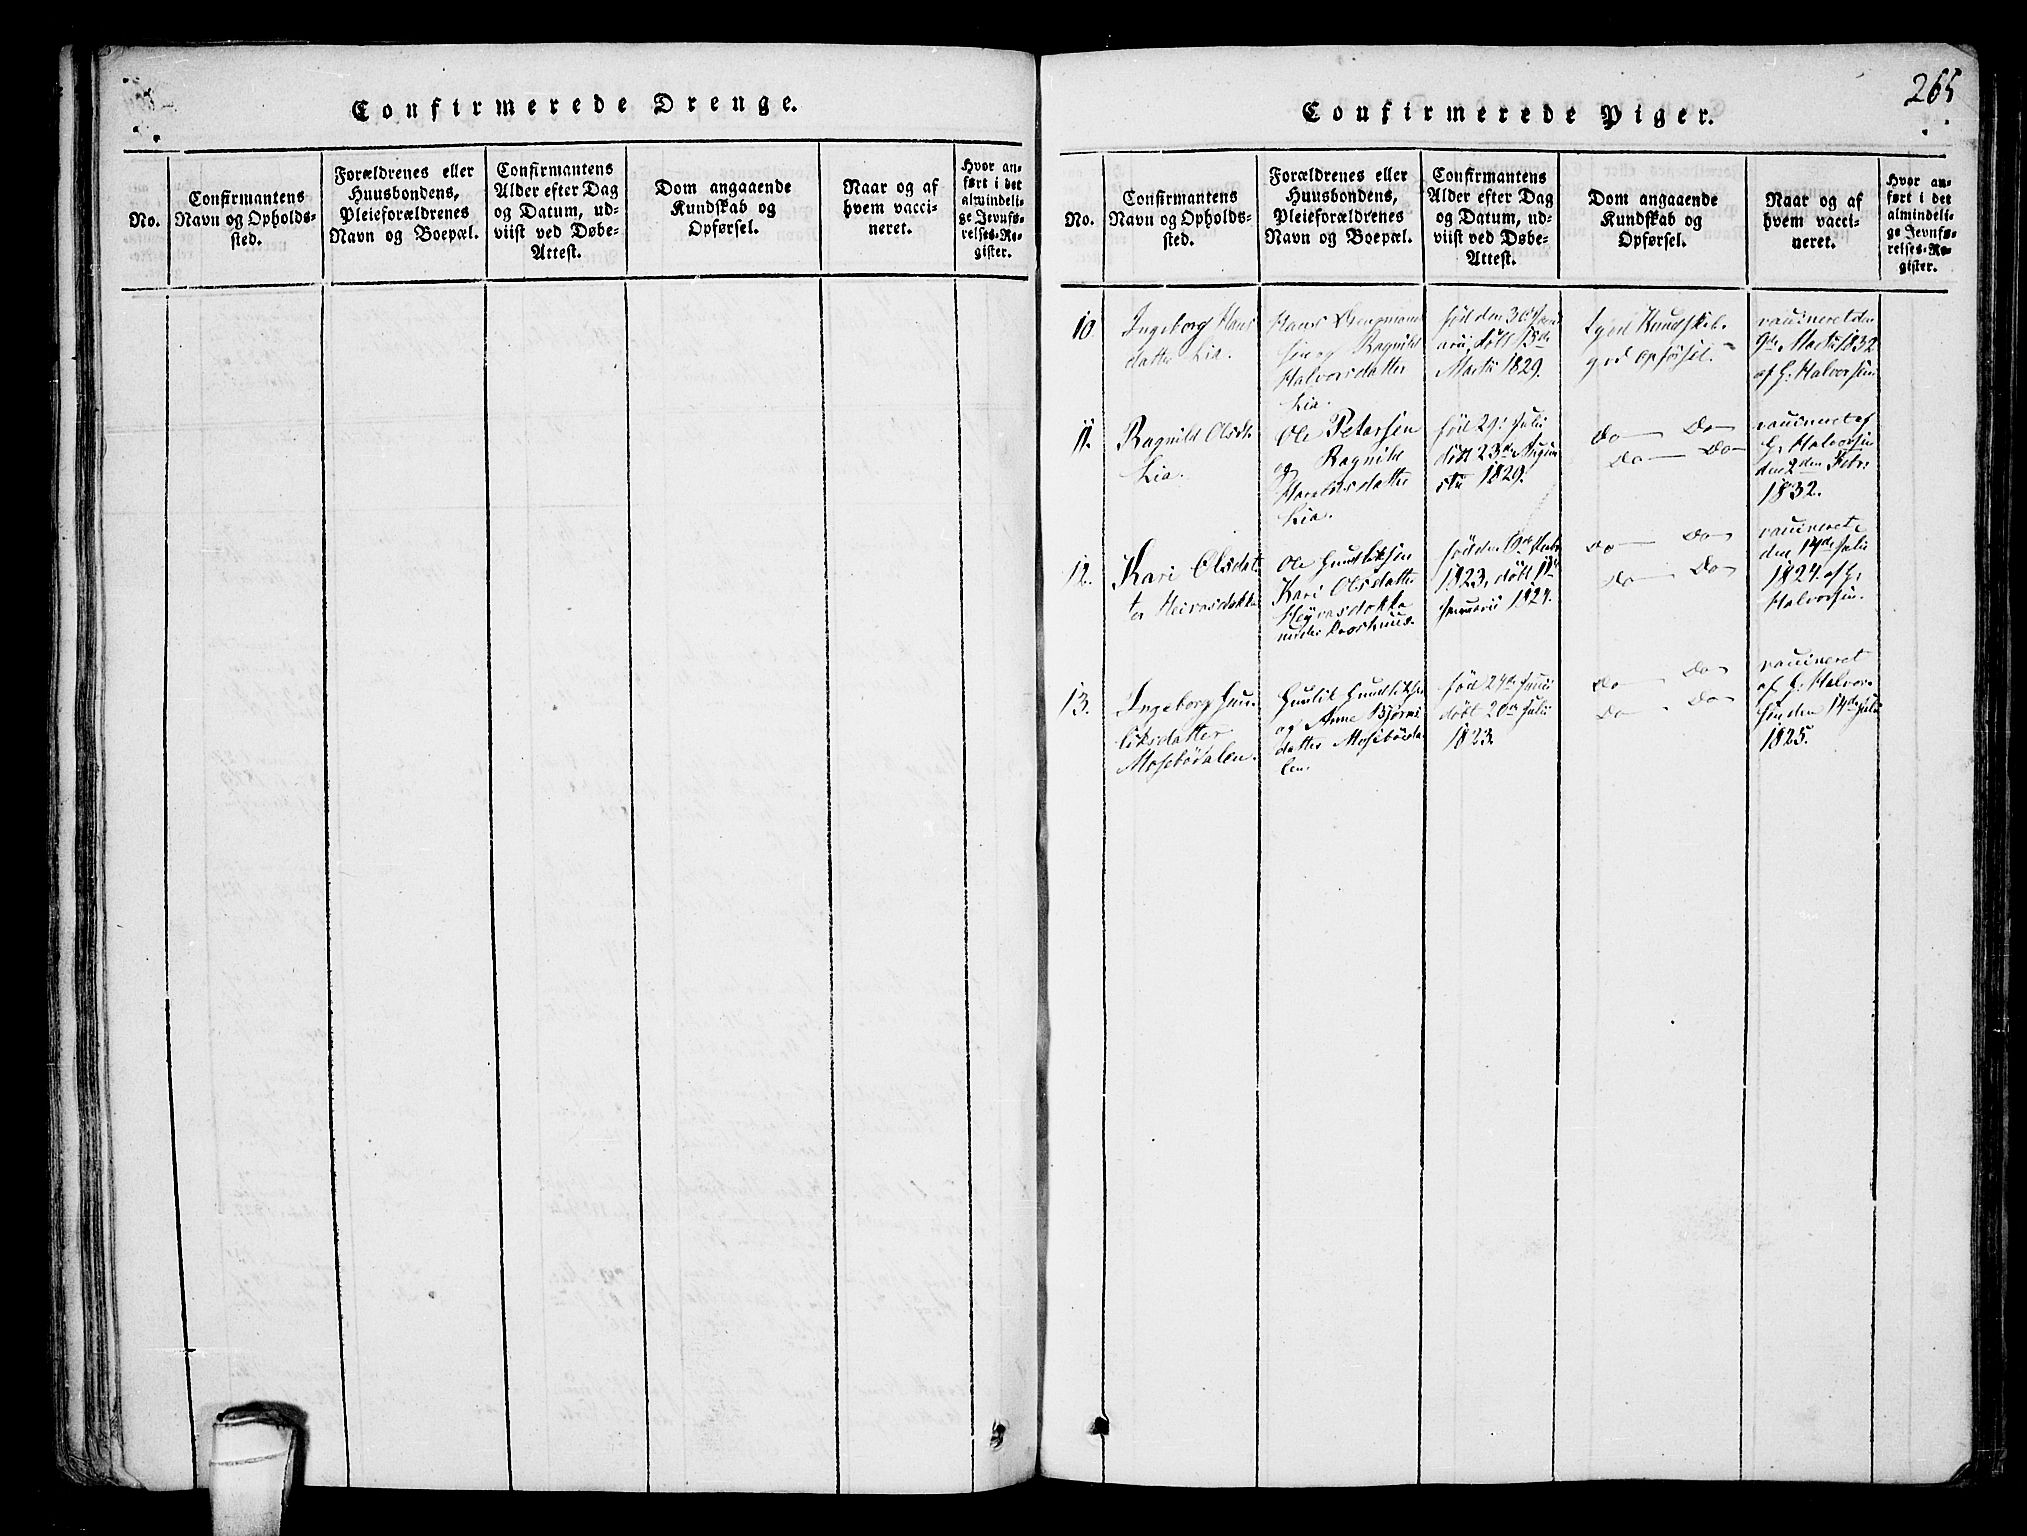 Confirmerede Drenge.
No.
Confirmantens
Navn og Opholds-
sted.
Forældrenes eller
Huusbondens,
Pleieforældrenes
Navn og Boepæl.
Confirmantens
Alder efter Dag
og Datum, ud-
viist ved Døbe-
Attest.
Dom angaaende
Kundskab og
Opførsel.
Naar og af
hvem vacci-
neret.
Hvor an-
ført i det
almindeli-
ge Jevnfø-
relses-Re-
gister.
265
Confirmerede Piger.
No.
Confirmantens
Navn og Opholds-
sted.
Forældrenes eller
Huusbondens,
Pleieforældrenes
Navn og Boepæl.
Confirmantens
Alder efter Dag
og Datum, ud-
viist ved Døbe-
Attest.
Dom angaaende
Kundskab og
Opførsel.
Naar og af
hvem vacci-
neret.
Hvor an-
ført i det
almindeli-
ge Jevnfø-
relses-Re-
gister.
10.
Ingeborg Hans
datter Lia.
Hans
Ragnild
Halvorsdatter
Lia.
fød den 30
døbt 15de
Marti 1829.
god Kundskab.
god opførsel.
vaccineret den
9de Marti 1832
af G: Halvorsen
11.
Ragnild Olsdtr
Lia.
Ole Petersen
og Ragnild
Lia.
fød 29. Julii
døbt 23de Augu
sti 1829.
Do Do
Do Do
vaccineret af
G: Halvorsen
den 2den Febr:
1832.
12.
Kari Olsdat
ter Heivasdokka
Ole Gundleksen
Kari Olsdatter
Heyvasdokka
under
fød den
1823, døbt
Januarii 1824.
Do Do
Do Do
vaccineret
den 14de Julii
1824 af G:
Halvorsen.
13.
Ingeborg Gun
leksdatter
Mosebødalen.
Gunlek Gundleksen
og Anne Bjørns
datter Mosebøda
len.
fød 24de Junii
døbt 20de Julii
1823.
Do Do
Do Do
vaccineret
af G: Halvor
sen den 14de Julii
1825.